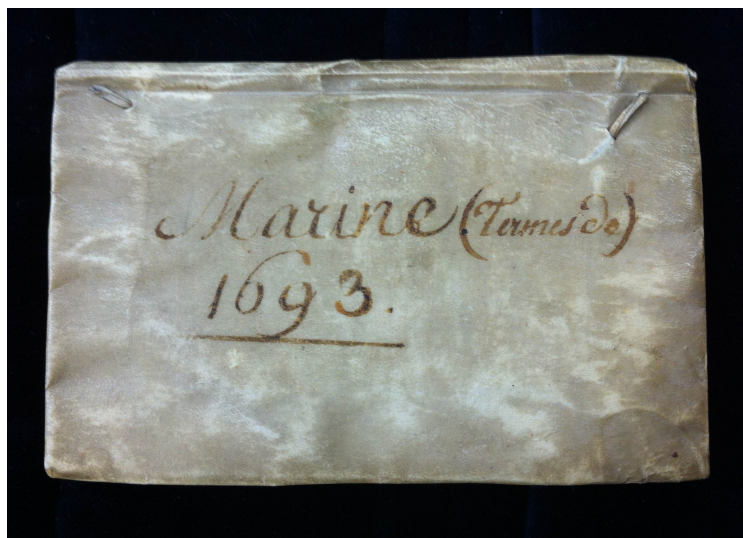 Marine (Termes de)
1693.